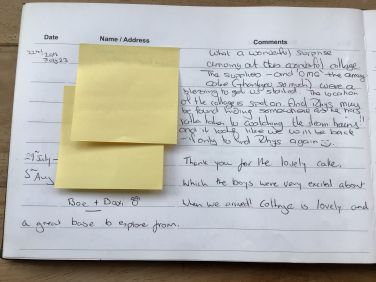 Date Name / Address Comments
22nd July 2023 What a wonderful surprise
arriving at this wonderful cottage
The supplies - and 'OMG' the amazing
cake (thankyou so much) were a
blessing to get us started. The location
of the cottage is spot on. And Rhys may
be found hiding somewhere as he has
catching the steam trains!!
and it looks like we will be back
if only to find Rhys again
29th July - Thank you for the lovely cake,
5th Aug which the boys were very excited about
+ when we arrived! Cottage is lovely and
a great base to explore from.